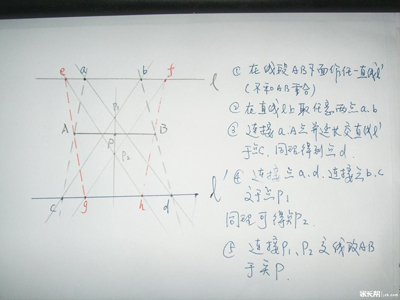 e a b f
l
P₁
A B
P
P₂
c g h d
l'
① 在线段AB下面作任一直线l'
(不和AB重合)
② 在直线l上取任意两点a.b
③ 连接a.A点并延长交直线l'
于点C.同理得到点d.
④ 连接点a.d.连接点b.c
交于点P₁
同理可得知P₂.
⑤ 连接P₁、P₂交线段AB
于点P.